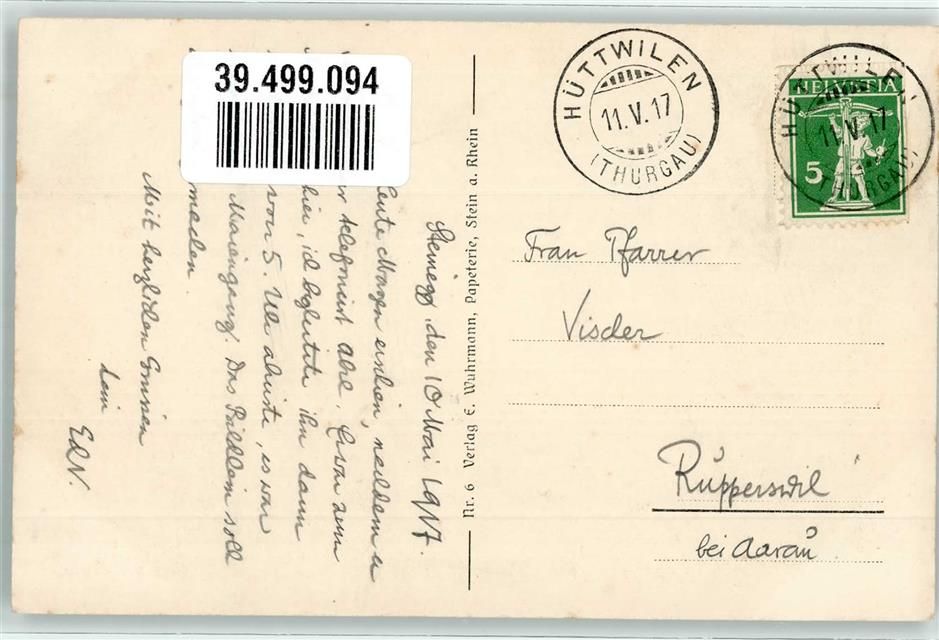 39.499.094
HÜTTWILEN
11.V.17
(THURGAU)
HÜTTWILEN
11.V.17
(THURGAU)
HELVETIA
5
Nr. 6 Verlag E. Wuhrmann, Papeterie, Stein a. Rhein
Steinegg, den 10 Mai 1917.
Heute Morgen erschien, nachdem er
telefoniert
hier, ich begleitete ihn dann
von 5. Uhr
Maiengang. Das Bildlein soll
machen.
Mit herzlichen Grüssen
Dein
Frau Pfarrer
Vischer
Rupperswil
bei Aarau